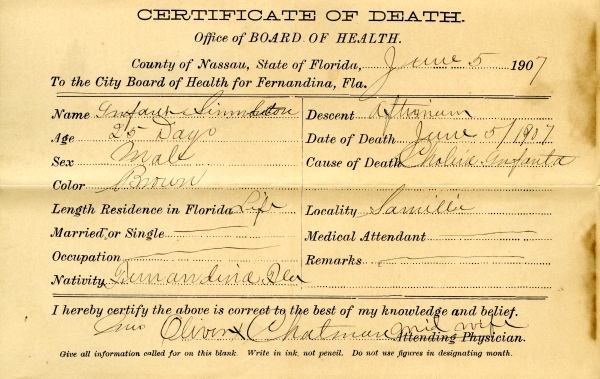 CERTIFICATE OF DEATH.
Office of BOARD OF HEALTH.
County of Nassau, State of Florida, June 5 1907
To the City Board of Health for Fernandina, Fla.
Name Infant
Age 25 Days
Sex Male
Color Brown
Length Residence in Florida Life
Married or Single
Occupation
Nativity Fernandina Fla
Descent
Date of Death June 5/1907
Cause of Death Infanta
Locality
Medical Attendant
Remarks
I hereby certify the above is correct to the best of my knowledge and belief.
Oliver x Chatman mid wife
Attending Physician.
Give all information called for on this blank. Write in ink, not pencil. Do not use figures in designating month.